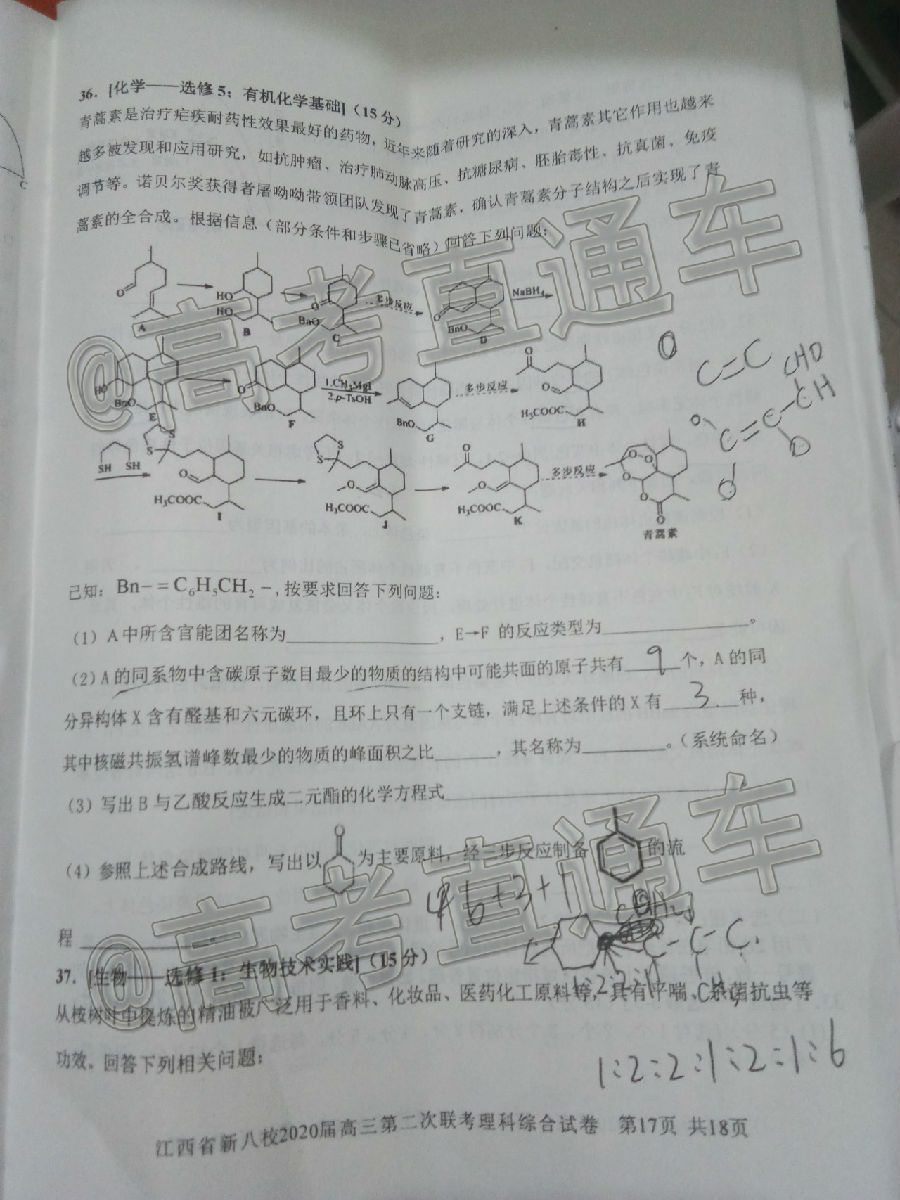 36. [化学——选修5：有机化学基础]（15分）
青蒿素是治疗疟疾耐药性效果最好的药物，近年来随着研究的深入，青蒿素其它作用也越来
越多被发现和应用研究，如抗肿瘤、治疗肺动脉高压、抗糖尿病、胚胎毒性、抗真菌、免疫
调节等。诺贝尔奖获得者屠呦呦带领团队发现了青蒿素，确认青蒿素分子结构之后实现了青
蒿素的全合成。根据信息（部分条件和步骤已省略）回答下列问题：
O
A
HO
HO
B
O
BnO
C
多步反应
O
BnO
D
NaBH4
HO
BnO
E
O
BnO
F
1.CH3MgI
2.p-TsOH
BnO
G
多步反应
O
O
H3COOC
H
SH SH
S
S
O
H3COOC
I
S
S
O
H3COOC
J
O
O
H3COOC
K
多步反应
O
O
O
O
青蒿素
C=C
CHO
已知：Bn-=C6H5CH2-, 按要求回答下列问题：
（1）A中所含官能团名称为____，E→F 的反应类型为____。
（2）A的同系物中含碳原子数目最少的物质的结构中可能共面的原子共有 9 个，A的同
分异构体X含有醛基和六元碳环，且环上只有一个支链，满足上述条件的X有 3 种，
其中核磁共振氢谱峰数最少的物质的峰面积之比____，其名称为____。（系统命名）
（3）写出B与乙酸反应生成二元酯的化学方程式____
（4）参照上述合成路线，写出以 O 为主要原料，经三步反应制备 的流
程____。
37. [生物——选修1：生物技术实践]（15分）
从桉树叶中提炼的精油被广泛用于香料、化妆品、医药化工原料等，具有平喘、杀菌抗虫等
功效。回答下列相关问题：
1:2:2:1:2:1:6
江西省新八校2020届高三第二次联考理科综合试卷 第17页 共18页
@高考直通车
@高考直通车